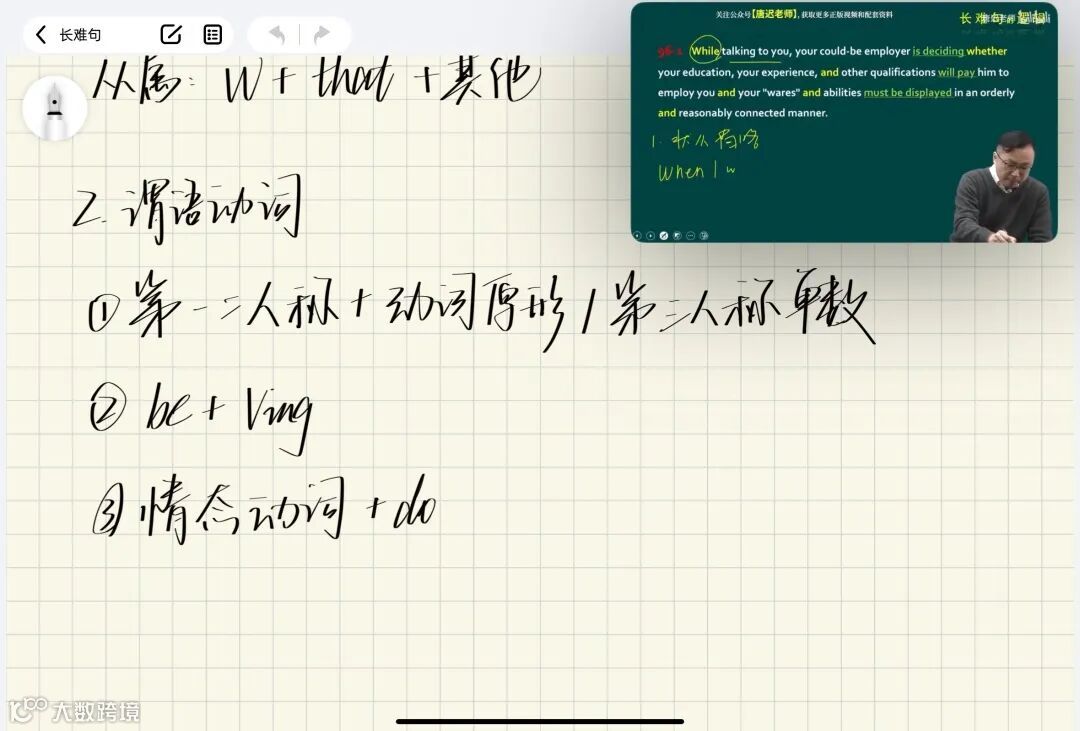 长难句
从属: W + that + 其他
2. 谓语动词
① 第一二人称 + 动词原形 / 第三人称单数
② be + Ving
③ 情态动词 + do
关注公众号【唐迟老师】, 获取更多正版视频和配套资料
长难句
96-1 While talking to you, your could-be employer is deciding whether
your education, your experience, and other qualifications will pay him to
employ you and your "wares" and abilities must be displayed in an orderly
and reasonably connected manner.
1. 状从省略
When I w
大数跨境